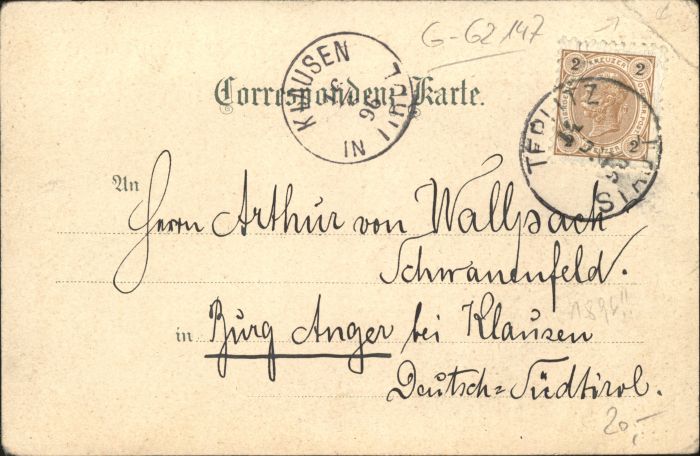 G-G2 147
2 KREUZER 2
Correspondenz-Karte.
KLAUSEN
96
IN TIROL
TEPLITZ
STADT
An
Herrn Arthur von Wallpach
Schwanenfeld.
1896!!
in Burg Anger bei Klausen
Deutsch=Südtirol.
20,-